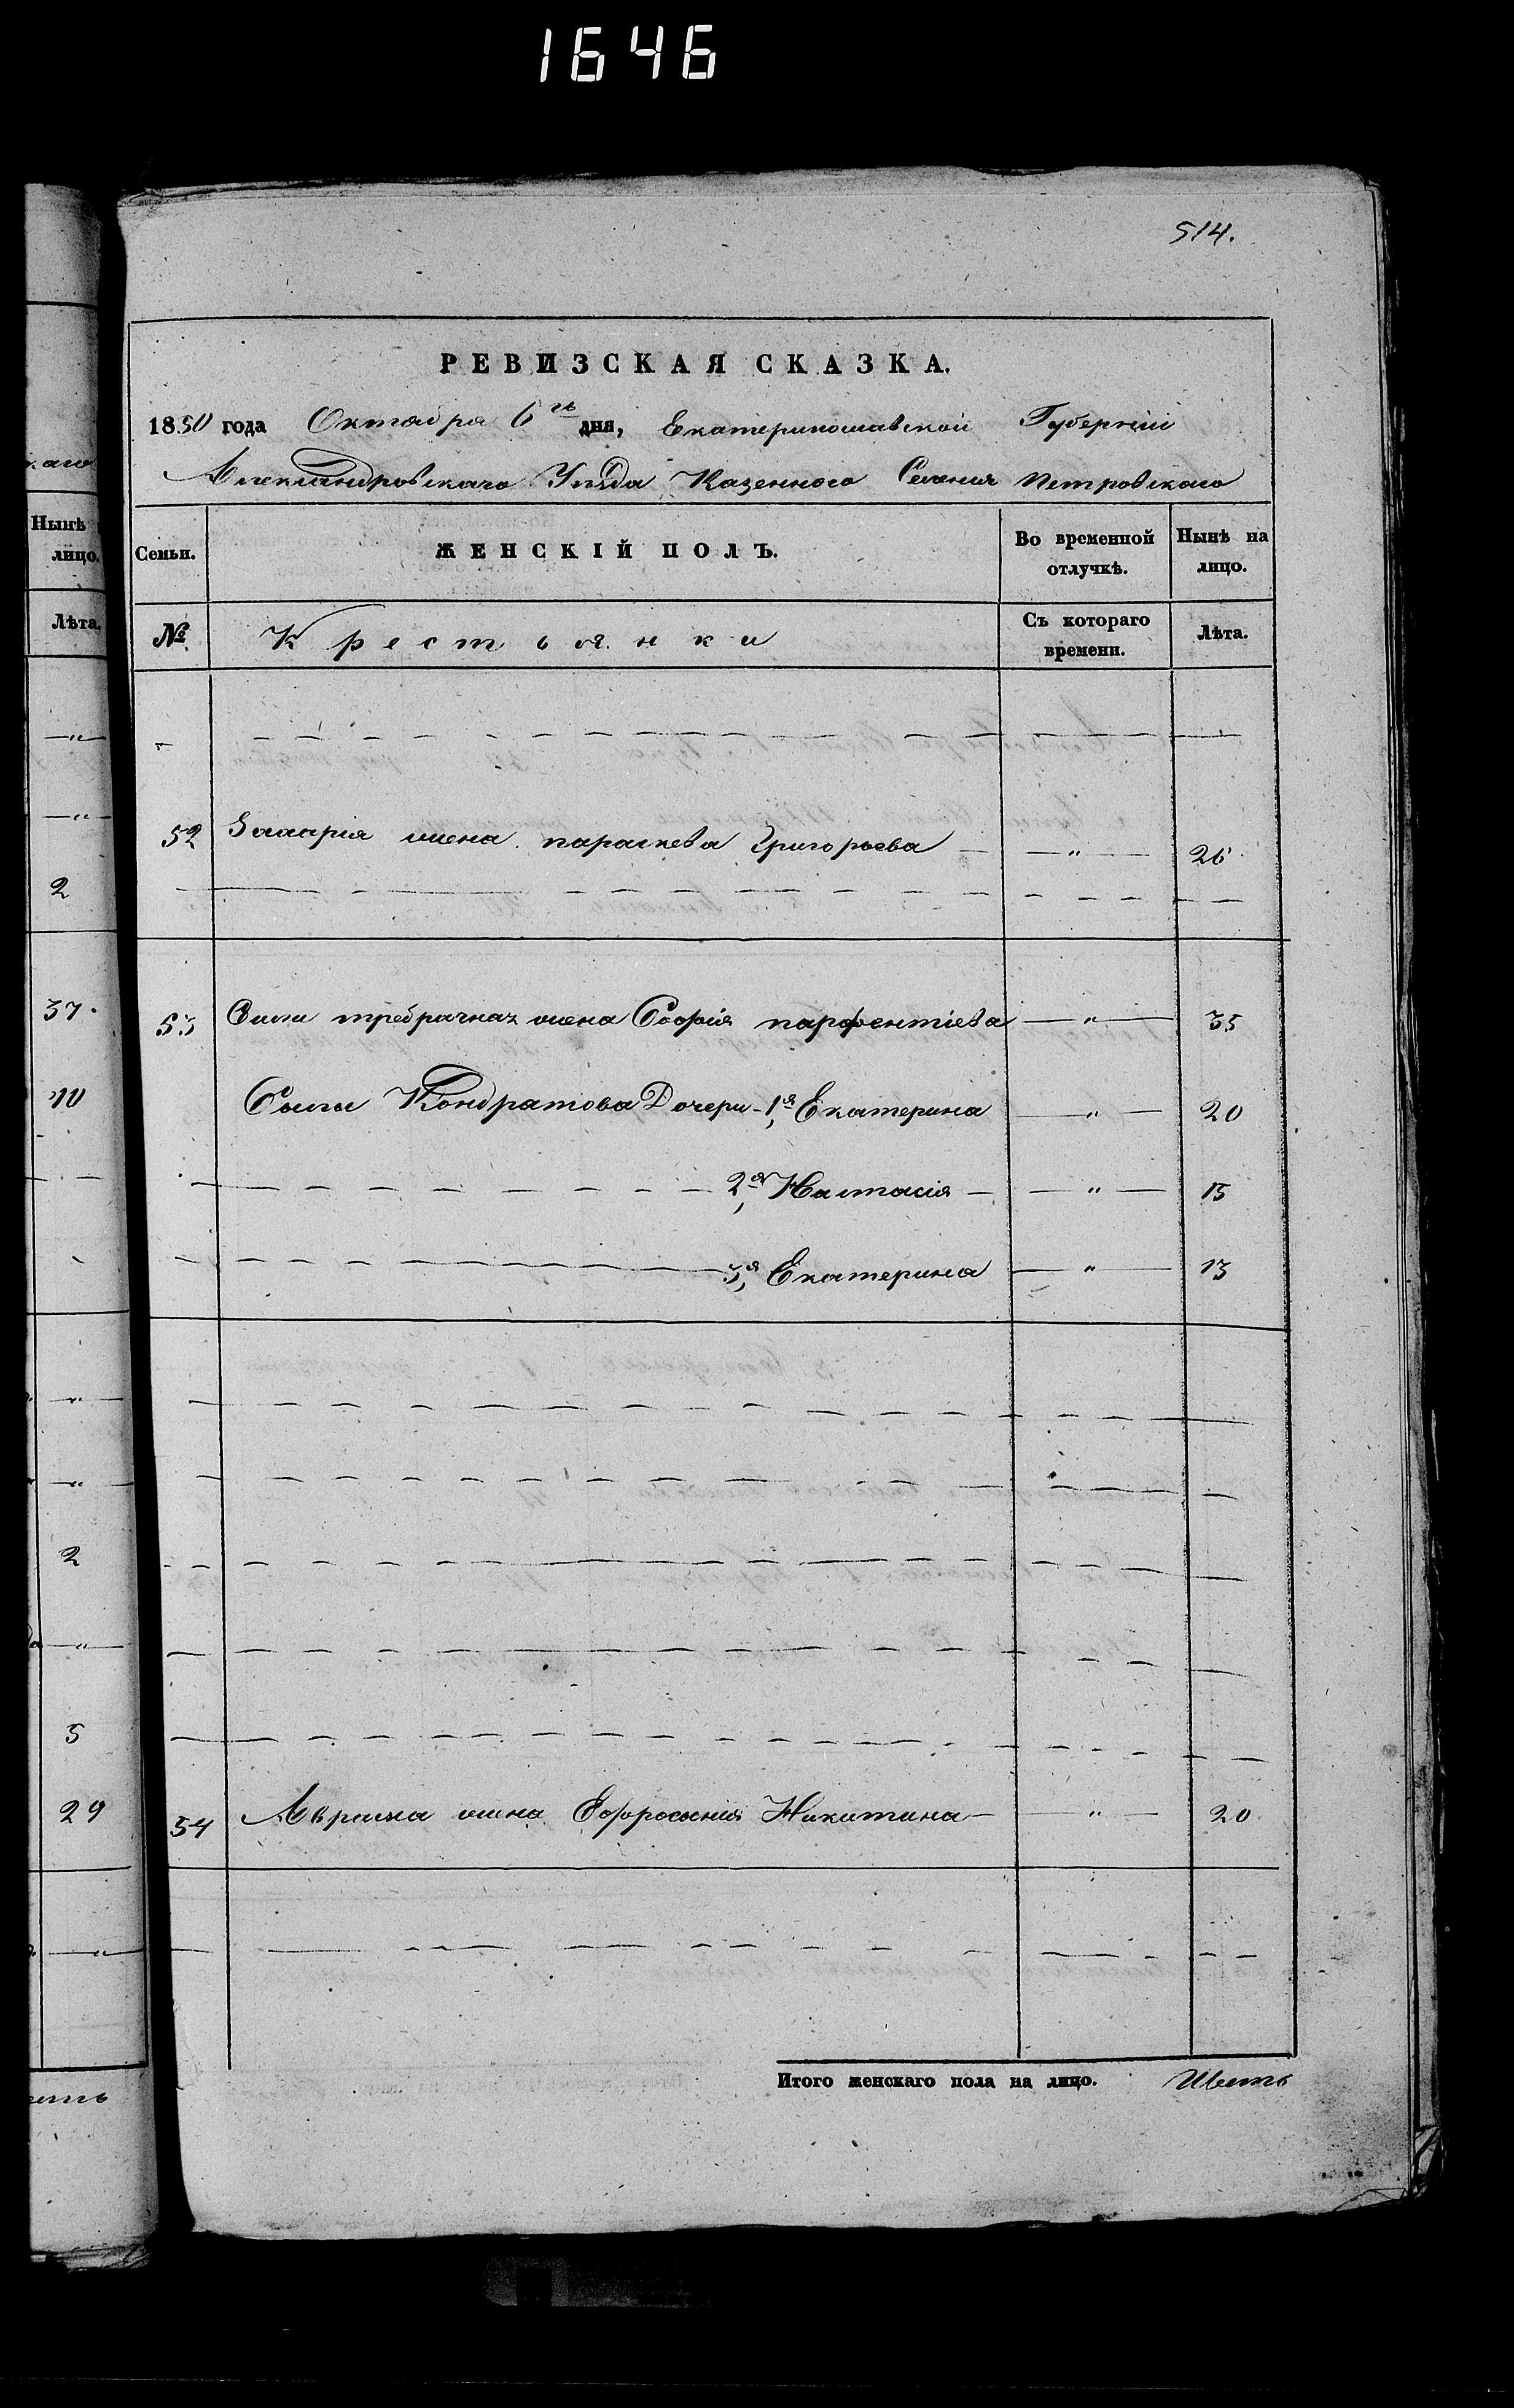 1646
514.
РЕВИЗСКАЯ СКАЗКА.
1850 года Октября 6го дня, Екатеринославской Губерніи
Александровскаго Уѣзда Казеннаго Селенія Петровскаго
каго
Нынѣ
лицо.
Лѣта.
Семьи. ЖЕНСКІЙ ПОЛЪ. Во временной отлучкѣ. Нынѣ на лицо.
№ Крестьянки Съ котораго времени. Лѣта.
52 Захарія жена параскева Григорьева — " — 26
2
37. 53 Силы требрачная жена Софія парфентіева — " — 35
10 Силы Кондратова Дочери - 1я, Екатерина — " — 20
2я, Настасія — — " — 15
3я, Екатерина — " — 13
2
5
29 54 Аврама жена Ефросинія Никитина — " — 20
Итого женскаго пола на лицо. Шесть